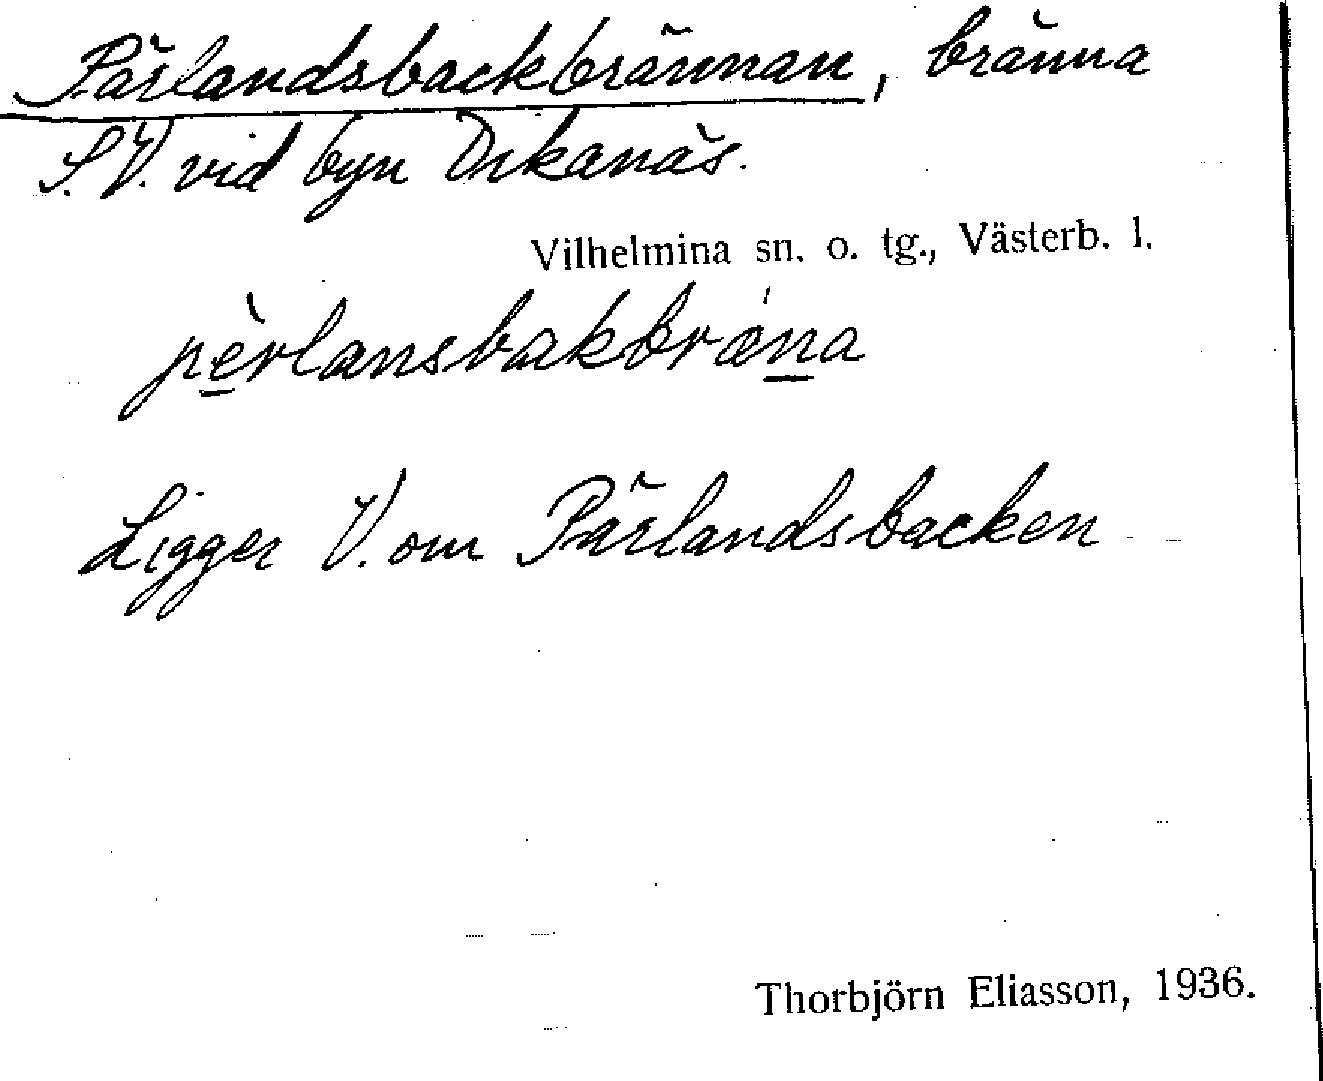 Pärlandsbackbrännan, bränna
S.V. vid byn Dikanäs.
Vilhelmina sn. o. tg., Västerb. l.
pè̱rlansbakbræ´n̲a
Ligger V. om Pärlandsbacken
Thorbjörn Eliasson, 1936.